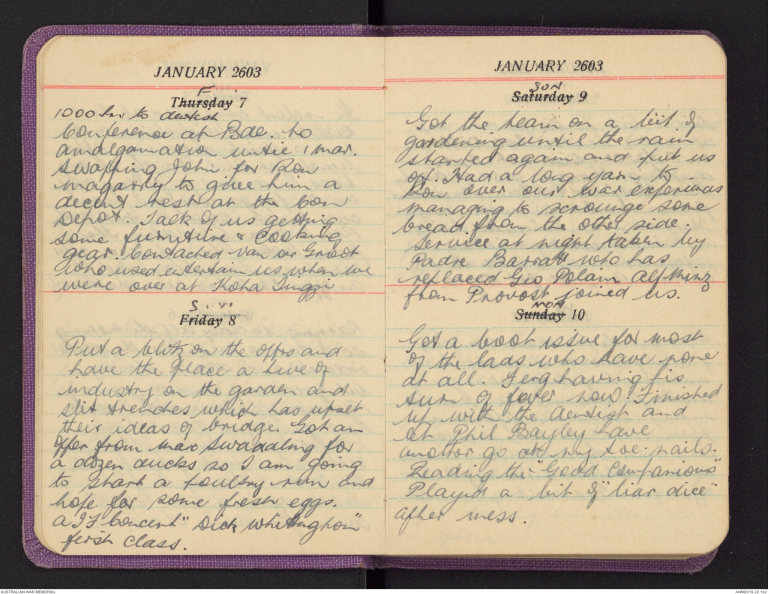 JANUARY 2603
F
Thursday 7
1000 hrs to dentist
Conference at Bde. to
amalgamation until 1 Mar.
Swapping John for Ron
Magarry to give him a
decent rest at the Con
Depot. Talk of us getting
some furniture & cooking
gear. Contacted Van der Groot
who used entertain us when we
were over at Kota Tinggi
S
Friday 8
Put a blitz on the offrs and
have the place a hive of
industry on the garden and
slit trenches which has upset
their ideas of bridge. Got an
offer from Mac Swaddling for
a dozen ducks so I am going
to start a poultry run and
hope for some fresh eggs.
AIF Concert "Dick Whittington"
first class.
JANUARY 2603
SUN
Saturday 9
Got the team on a bit of
gardening until the rain
started again and put us
off. Had a long yarn to
Ron over our war experiences
managing to scrounge some
bread from the other side.
Service at night taken by
Padre Barratt who has
replaced Geo Polain. Alf Menz
from Provost joined us.
MON
Sunday 10
Got a boot issue for most
of the lads who have none
at all. Ferg having his
turn of fever now. Finished
up with the dentist and
let Phil Bayley have
another go at my toe-nails.
Reading the "Good Companions"
Played a bit of "liar dice"
after mess.
AUSTRALIAN WAR MEMORIAL